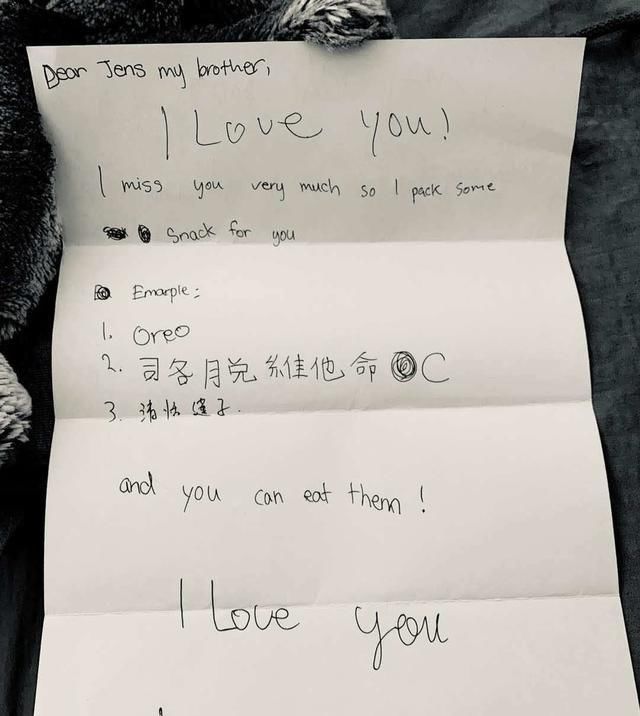 Dear Jens my brother,
I Love you!
I miss you very much so I pack some
Snack for you
Emarple:
1. Oreo
2. 司各脱維他命 C
3.
and you can eat them!
I Love you